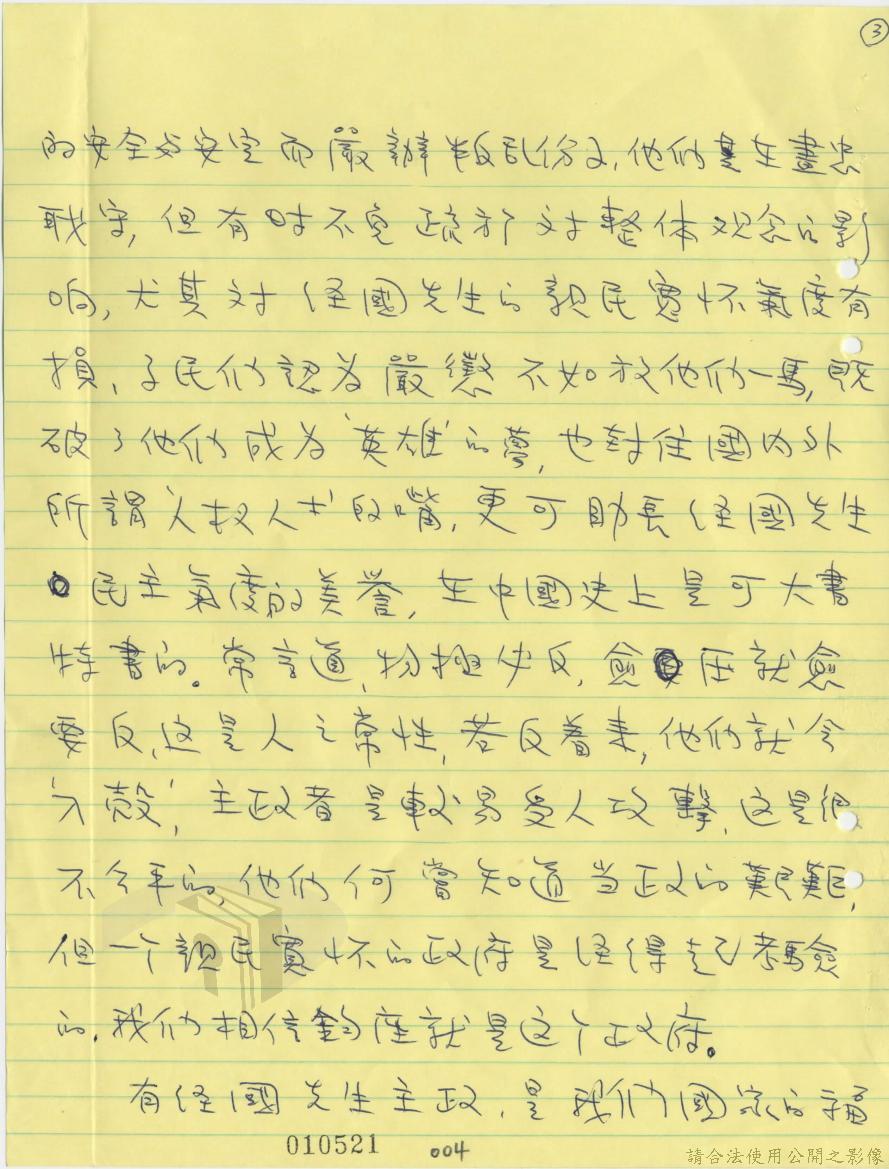 ③
的安全与安定而嚴辦叛乱份子,他們是在盡忠
职守,但有时不免疏於对整体观念的影
响,尤其对经國先生的親民寬怀氣度有
損,子民们認为嚴懲不如放他们一馬,既
破了他们成为"英雄"的夢,也封住國内外
所謂"人权人士"的嘴,更可助長经國先生
民主氣度的美誉,在中國史上是可大書
特書的。常言道,物極必反,愈压就愈
要反,这是人之常性,若反着来,他们就会
"入殼",主政者是較易受人攻擊,这是很
不公平的,他们何嘗知道当政的艱難,
但一个親民寬怀的政府是经得起考驗
的,我们相信鈞座就是这个政府。
有经國先生主政,是我们國家的福
010521 004
請合法使用公開之影像